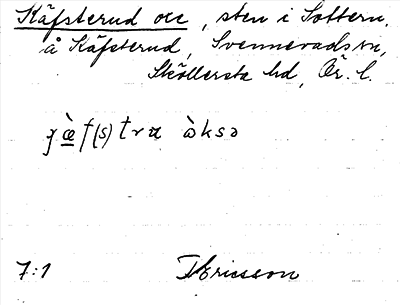 Käfsterud oxe, sten i Sottern,
å Käfsterud, Svennevads sn,
Sköllersta hd, Ör. l.
ɟæ̀f(s)tra ɷ̀ksə
7:1 TEricsson